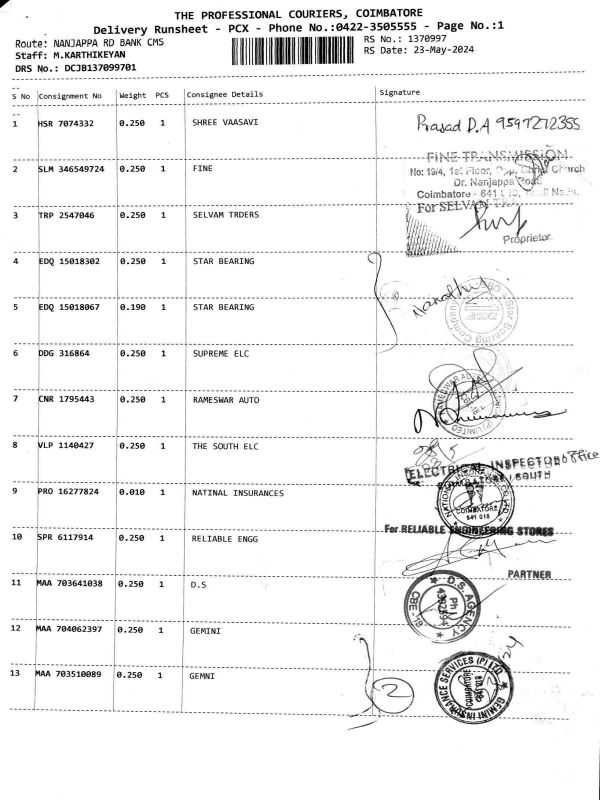 THE PROFESSIONAL COURIERS, COIMBATORE
Delivery Runsheet - PCX - Phone No.:0422-3505555 - Page No.:1
Route: NANJAPPA RD BANK CMS
RS No.: 1370997
Staff: M.KARTHIKEYAN
RS Date: 23-May-2024
DRS No.: DCJB137099701
S No Consignment No Weight PCS Consignee Details Signature
1 HSR 7074332 0.250 1 SHREE VAASAVI Prasad D.A 9597272355
FINE TRANSMISSION
2 SLM 346549724 0.250 1 FINE No: 19/4, 1st Floor, Opp. Christ Church
Dr. Nanjappa Road
Coimbatore - 641
For SELVAM
3 TRP 2547046 0.250 1 SELVAM TRDERS
Proprietor
4 EDQ 15018302 0.250 1 STAR BEARING
5 EDQ 15018067 0.190 1 STAR BEARING Star Bearing Company
6 DDG 316864 0.250 1 SUPREME ELC
7 CNR 1795443 0.250 1 RAMESWAR AUTO
8 VLP 1140427 0.250 1 THE SOUTH ELC
ELECTRICAL INSPECTOR office
COIMBATORE / SOUTH
9 PRO 16277824 0.010 1 NATINAL INSURANCES
COIMBATORE
641 018
For RELIABLE ENGINEERING STORES
10 SPR 6117914 0.250 1 RELIABLE ENGG
PARTNER
11 MAA 703641038 0.250 1 D.S D.S. AGENCY
CBE-18
12 MAA 704062397 0.250 1 GEMINI
13 MAA 703510089 0.250 1 GEMNI 2 GEMINI INSURANCE SERVICES (P) LTD